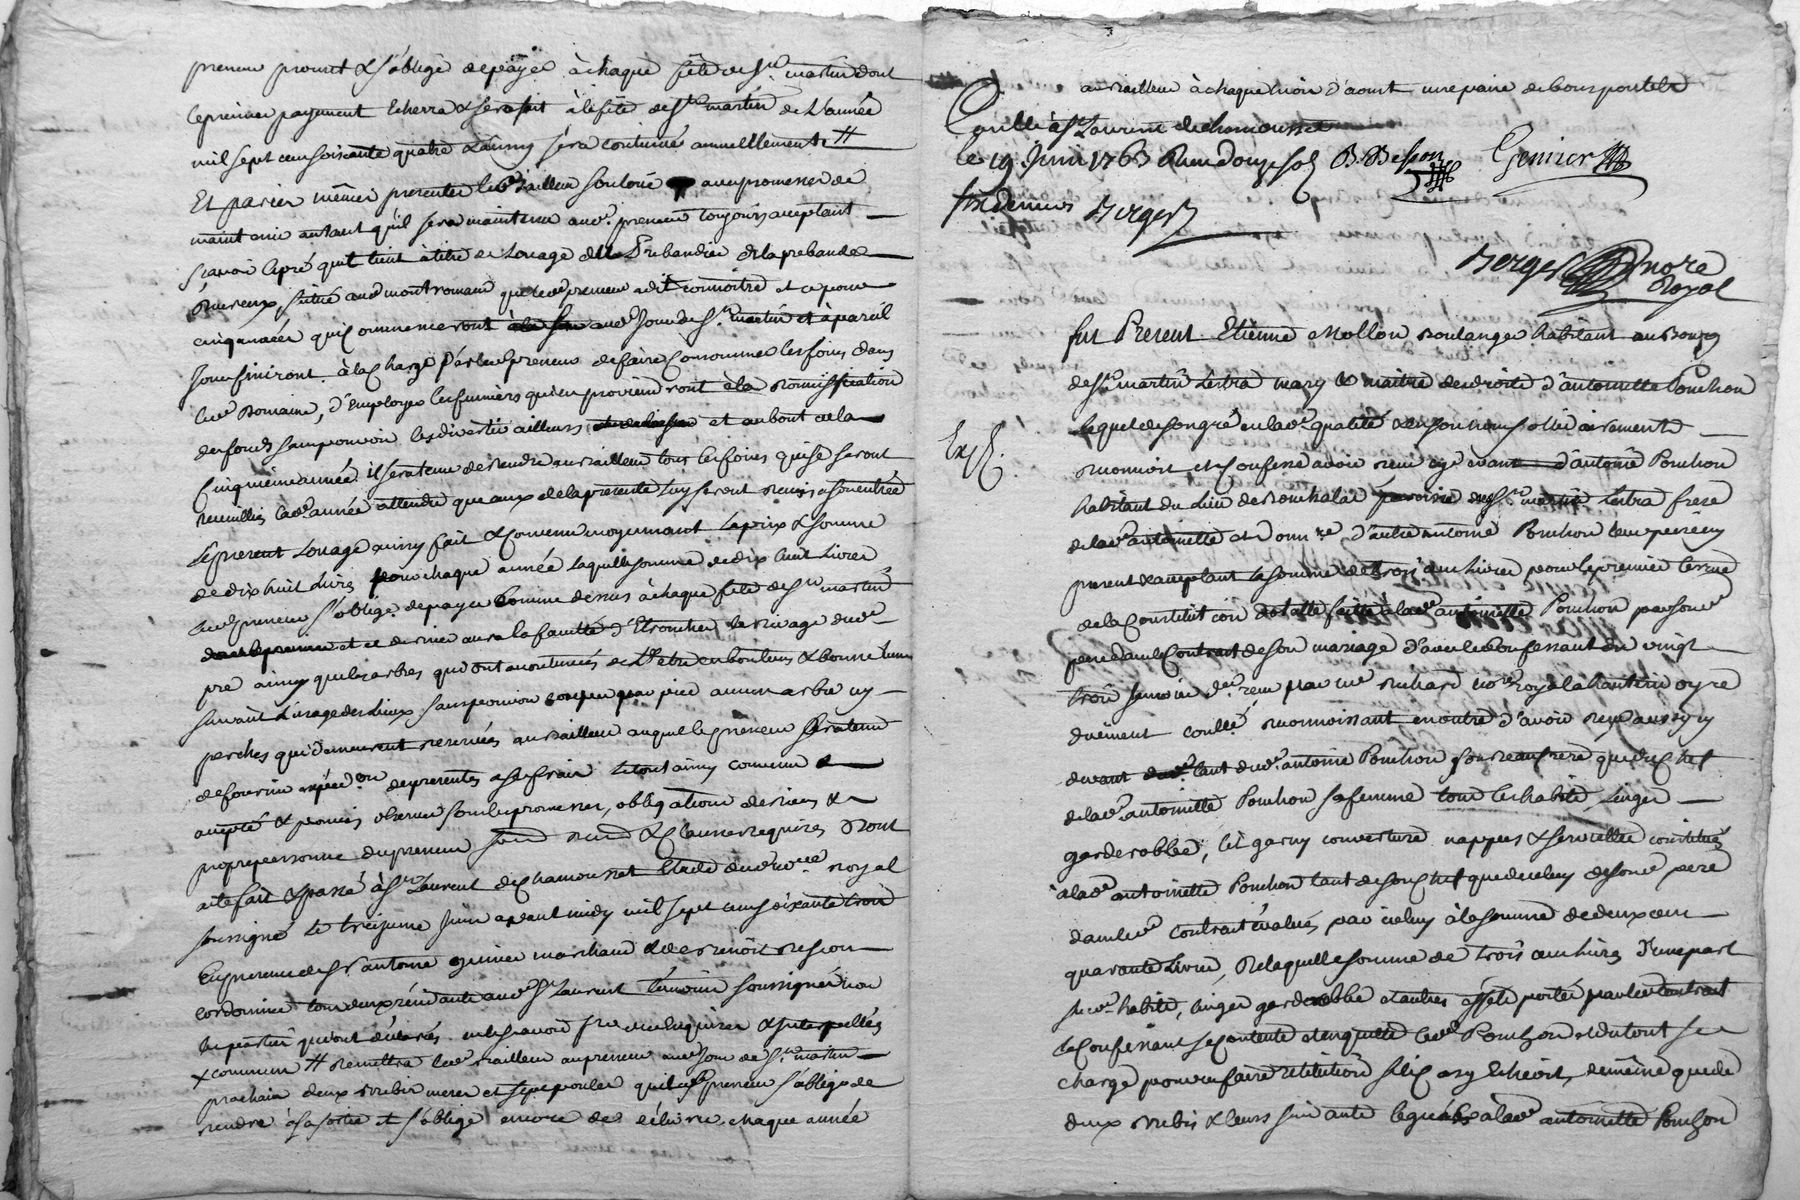 preneur promet & s'oblige de payer à chaque fête de St martin dont
le premier payement Echerra & sera fait à la fête de St martin de L'année
mil sept cent soixante quatre & ainsy sera continué annuellement #
Et par ces mêmes presentes led bailleur Loue avec promesse de
maintenir autant qu'il sera maintenu aud. preneur toujours acceptant
scavoir le pré qu'il tient à titre de Louage de la Prebande
situé aud montromand que led preneur a dit connoitre et ce pour
cinq années qui commenceront aud Jour de St martin et à pareil
Jour finiront à la Charge par led preneur de faire Consommer les foins dans
led Domaine, d'Employer les fumiers qui en proviendront à la
des fonds sans pouvoir les divertir ailleurs et au bout de la
Cinquième année il sera tenu de rendre au bailleur tous les foins qui se seront
recueillis lad. année attendu que ceux de la presente Luy seront remis à son entrée
Le present Louage ainsy fait & Convenu moyennant Le prix & somme
de dix huit Livres pour chaque année laquelle somme de dix huit Livres
led preneur s'oblige de payer Comme dessus à chaque fête de St martin
et ce dernier aura la faculté d'Ebrancher le rivage dud
pré ainsy que les arbres qui ont accoutumés de L'etre en bon tems & bonne Lune
suivant L'usage des Lieux sans pouvoir couper par pied aucun arbre ny
perches qui demeurent reservées au bailleur auquel le preneur sera tenu
de fournir expéd.on des presentes à ses frais Le tout ainsy convenu
accepté & promis observer sous les promesses, obligations de biens &
propre personne du preneur & Clauses requises Dont
acte fait & passé à St Laurent de Chamousset Etude du no.re royal
soussigné Le treizieme Juin avant midy mil sept cent soixante trois
En presence de Sr antoine marchand & de Benoit Besson
cordonnier tous deux résidants aud St Laurent témoins soussignés non
les parties qui ont déclarés ne le scavoir faire de ce Enquises & Interpellées
& commun # remettra led bailleur au preneur aud Jour de St martin
prochain deux brebis meres et sept poules que led preneur s'oblige de
rendre à sa sortie et s'oblige encore de délivrer chaque année
au bailleur à chaque mois d'aoust une paire de bons poulets
Controllé à St Laurent de chamousset
le 19 Juin 1763 Reçu douze sols B. Besson Grenier
Berger
Berger no.re Royal
fut Present Etienne Mollon Boulanger habitant au Bourg
de St martin Lestra mary & maitre des droits d'antoinette Ponchon
Exp.
lequel de son gré en lad. qualité
reconnoit et Confesse avoir reçu cy devant d'antoine Ponchon
habitant du Lieu de paroisse dud St martin Lestra frere
de lad antoinette et d'autre antoine Ponchon leur pere icy
present & acceptant la somme de trois cens Livres pour le premier terme
de la Constitution de dotte faitte à lad antoinette Ponchon par sond
pere dans le Contrat de son mariage d'avec le Confessant du vingt
trois reçu par me Richard no.re royal à hauterivoire
duëment conllé reconnoissant en outre d'avoir reçu aussy cy
devant tant dud. antoine Ponchon son beaufrere que du Chef
de lad. antoinette Ponchon sa femme tous les habits, Linges
garderobbe, Lit garny couverture nappes & serviettes constitués
à lad antoinette Ponchon tant de son Chef que de celuy de sond pere
dans led contrat évalués par iceluy à la somme de deux cent
quarante Livres, De laquelle somme de trois cens livres d'une part
susd. habits, linges garderobbe et autres effets portés par led contrat
le Confessant se Contente et en quitte led Ponchon et du tout se
charge pour en faire restitution si le Cas y Echeoit, de même que de
deux brebis & leurs suivants legués à lad antoinette Ponchon